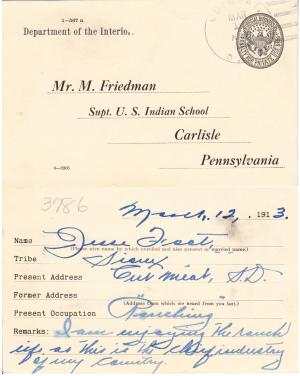 1-567 a
Department of the Interior.
Mr. M. Friedman
Supt. U. S. Indian School
Carlisle
Pennsylvania
6-1305
3786
March. 12, 1913.
Name Jesse
(Please give name by which enrolled and also present or married name.)
Tribe Sioux
Present Address Cut Meat, S.D.
Former Address
(Address from which we heard from you last.)
Present Occupation Ranching
Remarks: I am enjoying the ranch
life, as this is the chief industry
of my country.